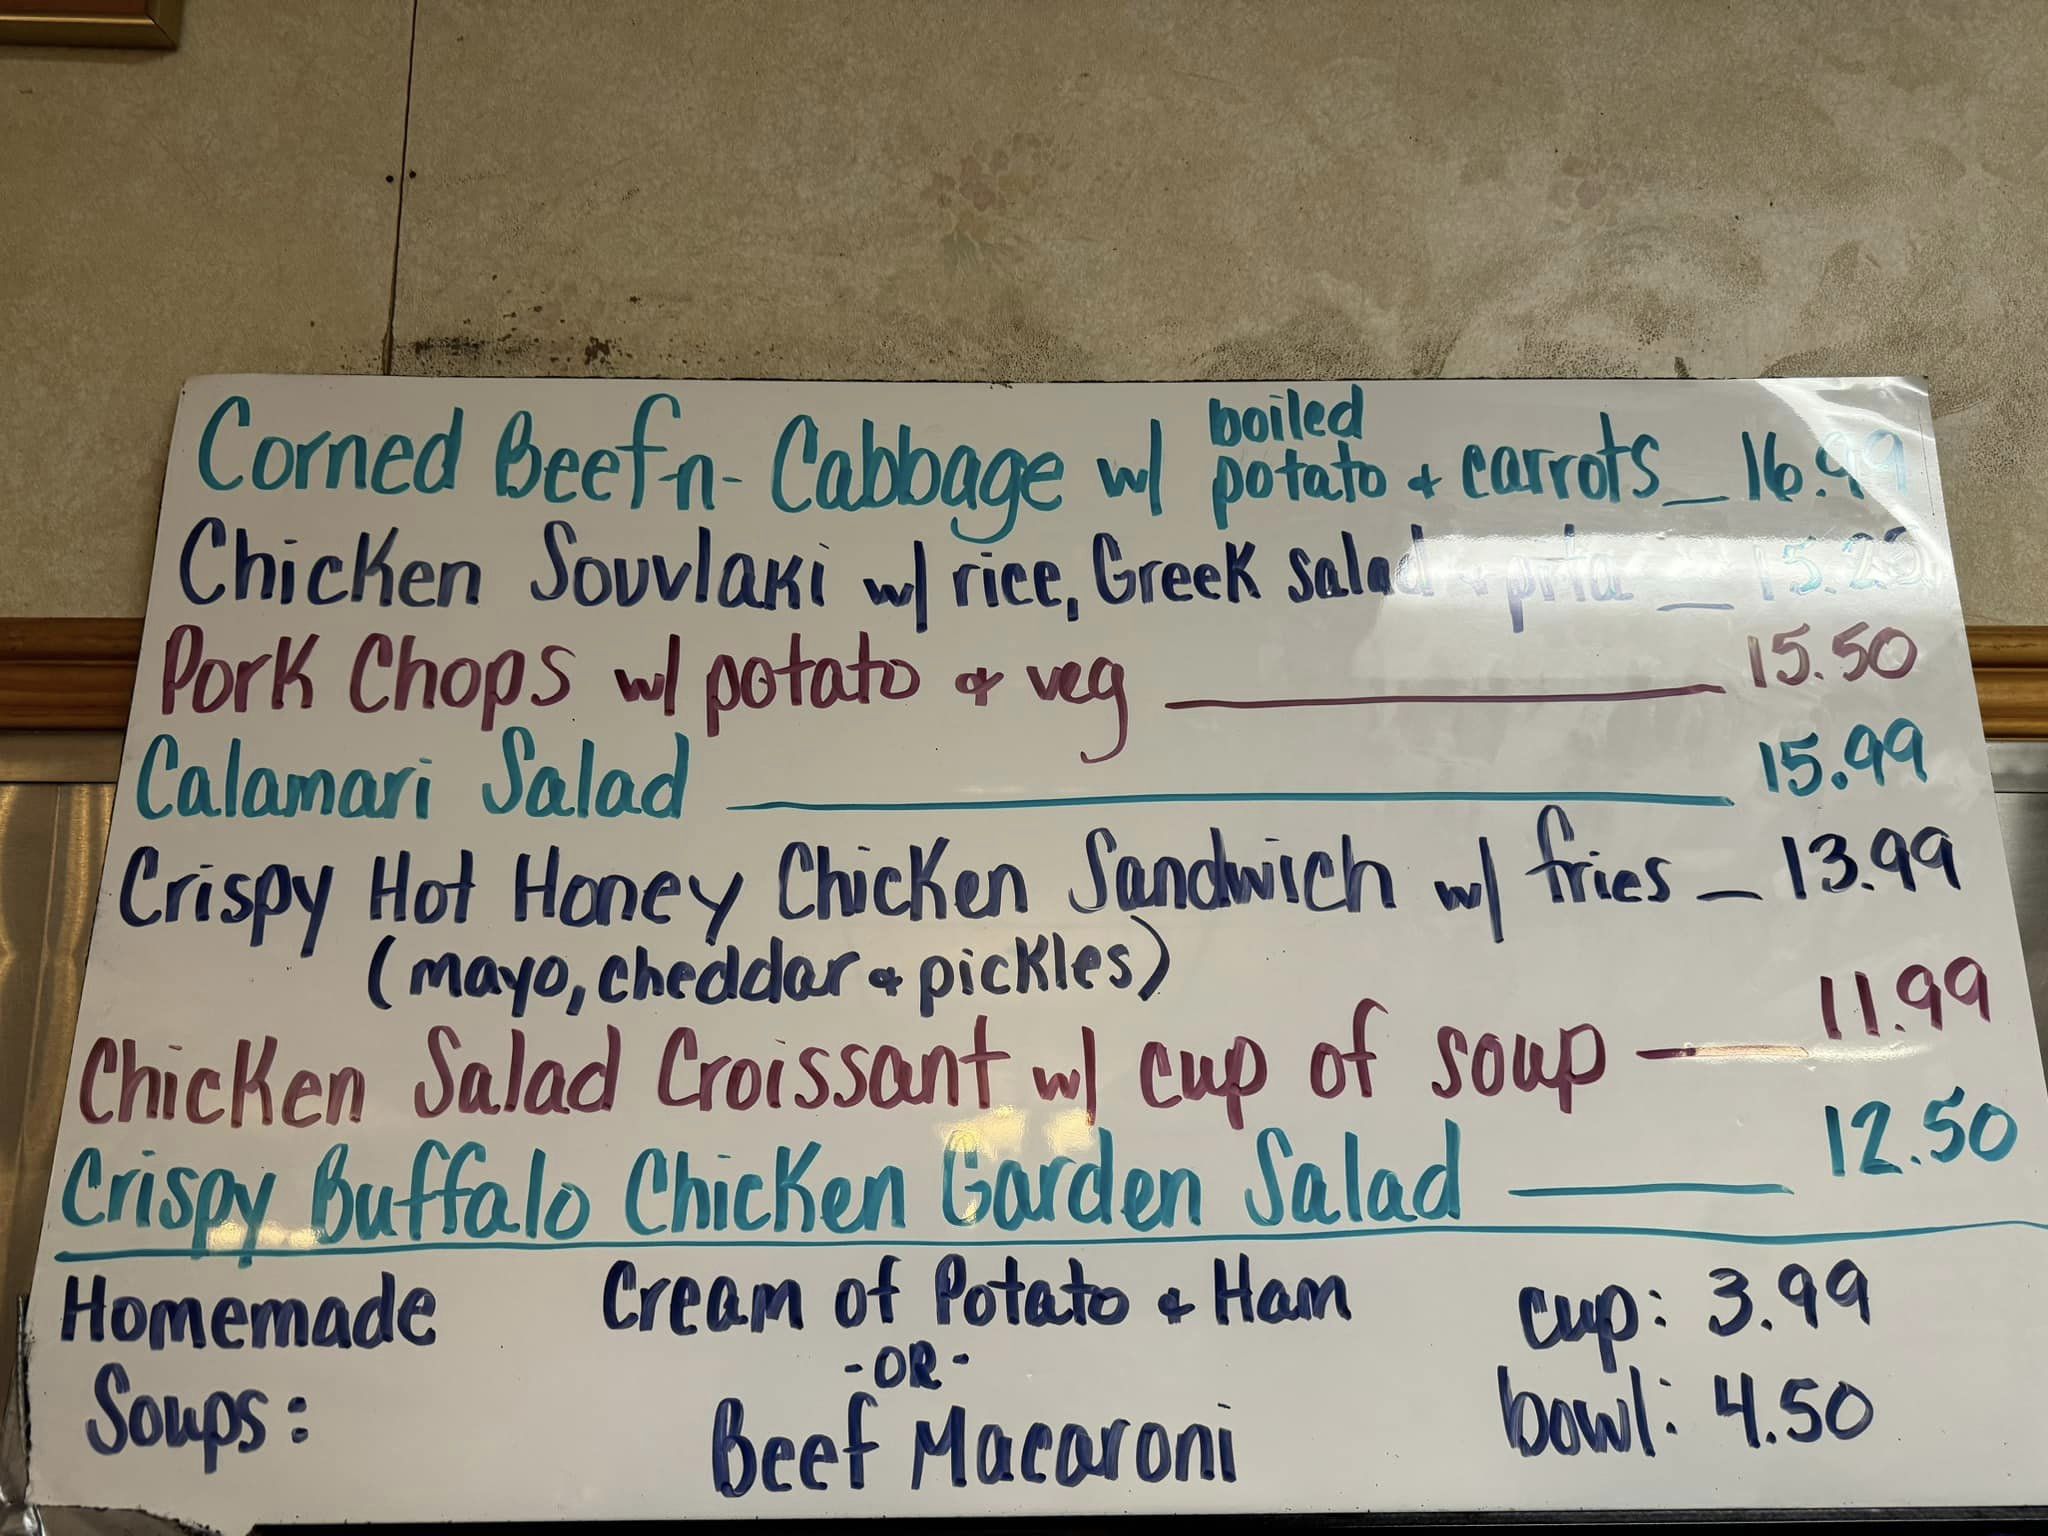 Corned Beef-n-Cabbage w/ boiled potato & carrots_ 16.99
Chicken Souvlaki w/ rice, Greek salad & pita _ 15.25
Pork Chops w/ potato & veg ______ 15.50
Calamari Salad ______ 15.99
Crispy Hot Honey Chicken Sandwich w/ fries _ 13.99
(mayo, cheddar & pickles)
Chicken Salad Croissant w/ cup of soup __ 11.99
Crispy Buffalo Chicken Garden Salad ___ 12.50
Homemade Cream of Potato & Ham cup: 3.99
-OR-
Soups: Beef Macaroni bowl: 4.50